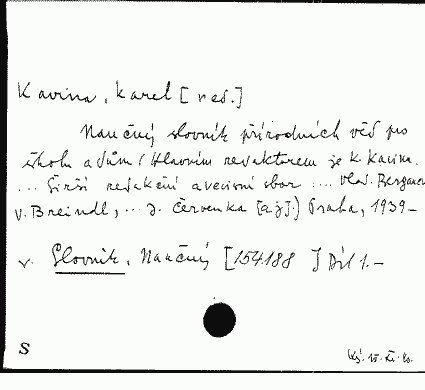 Kavina, Karel [red.]
Naučný slovník přírodních věd pro
školu a dům / Hlavním redaktorem je K. Kavina.
... Širší redakční a věcný sbor .... Vlad. Bergauer
V. Breindl, ... J. Červenka [aj.]) Praha, 1939–
v. Slovník, Naučný [154188 ] Díl 1.–
S